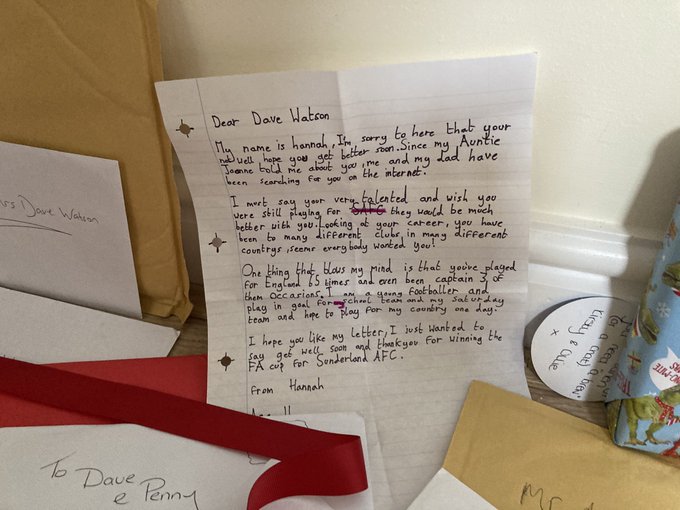 Dear Dave Watson
My name is hannah, I'm sorry to here that your
not well hope you get better soon. Since my Auntie
Joanne told me about you, me and my dad have
been searching for you on the internet.
I must say your very talented and wish you
were still playing for SAFC they would be much
better with you. Looking at your career, you have
been to many different clubs, in many different
countrys, seems everybody wanted you!
One thing that blows my mind is that you've played
for England 65 times and even been captain 3 of
them occasions. I am a young footballer and
play in goal for school team and my Saturday
team and hope to play for my country one day.
I hope you like my letter, I just wanted to
say get well soon and thankyou for winning the
FA cup for Sunderland AFC.
from Hannah
Age 11
Mrs Dave Watson
To Dave
e Penny
Mr